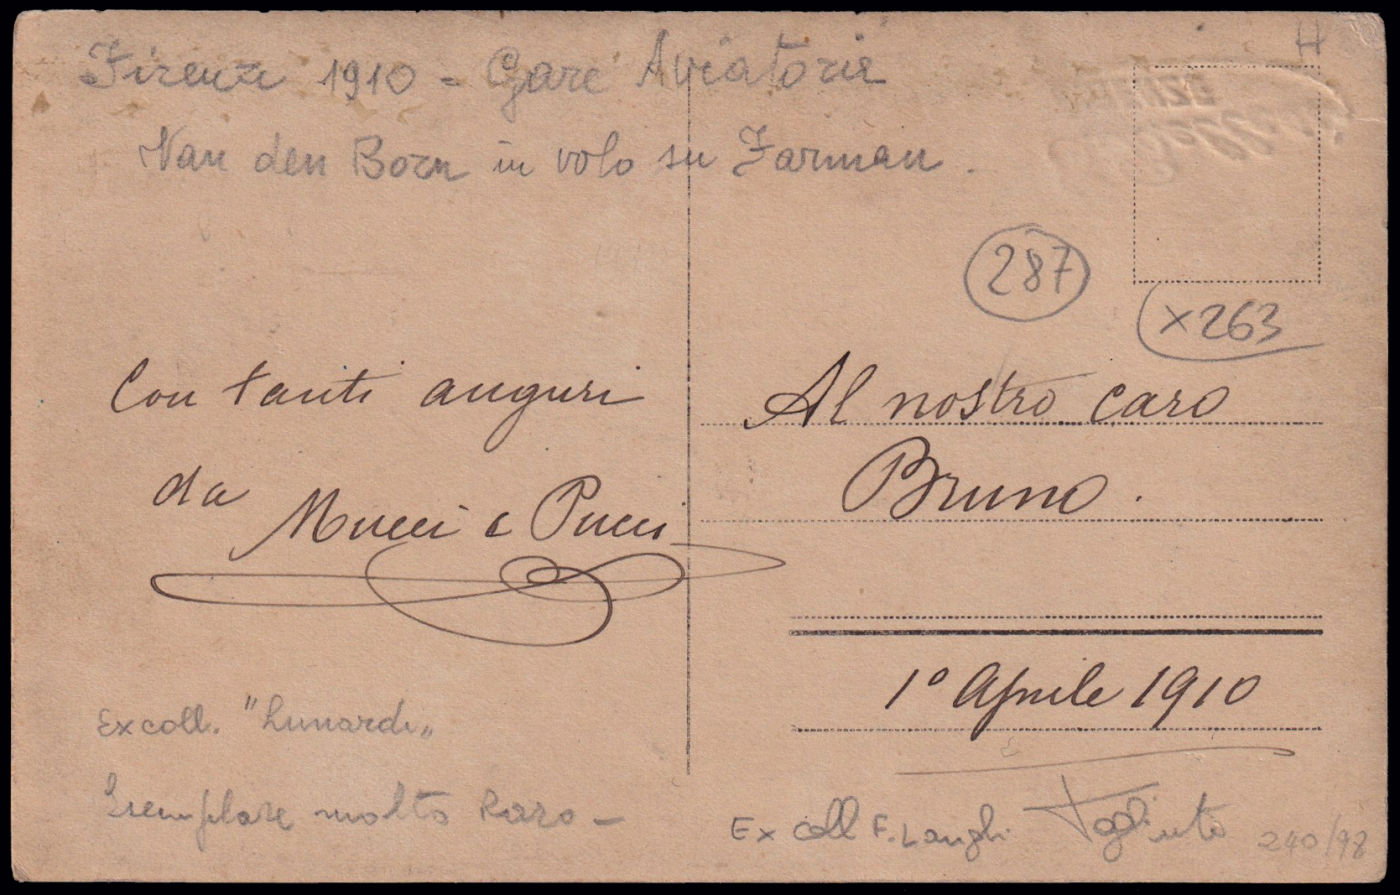 Firenze 1910 - Gare Aviatorie
Van den Born in volo su Farman.
H
287
x263
Con tanti auguri
da Mucci e Pucci
Al nostro caro
Bruno.
1° Aprile 1910
Ex coll. "Lunardi"
Esemplare molto Raro -
Ex coll F. Langhi
240/98